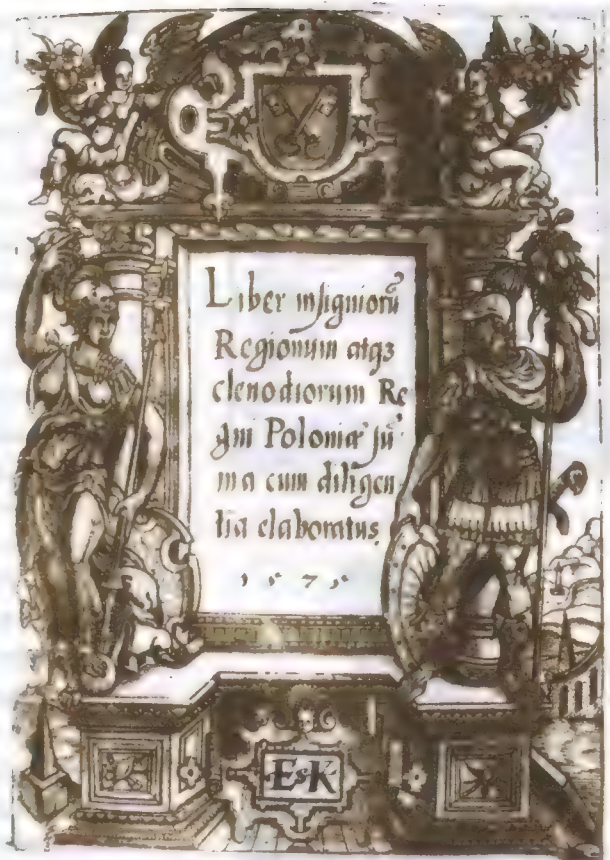 Liber insigniorũ
Regionum atqꝫ
clenodiorum Re
gni Poloniæ sũ
ma cum diligen
tia elaboratus.
1575
E&K